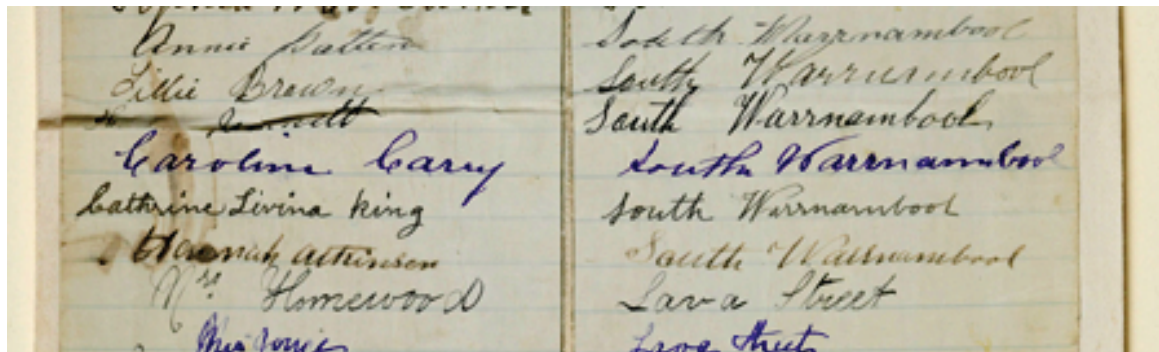 Annie Patten South Warrnambool
Lillie Brown South Warrnambool
South Warrnambool
Caroline Carey South Warrnambool
Cathrine Livina King South Warrnambool
Hannah Atkinson South Warrnambool
Mrs Homewood Lava Street
Jones Street